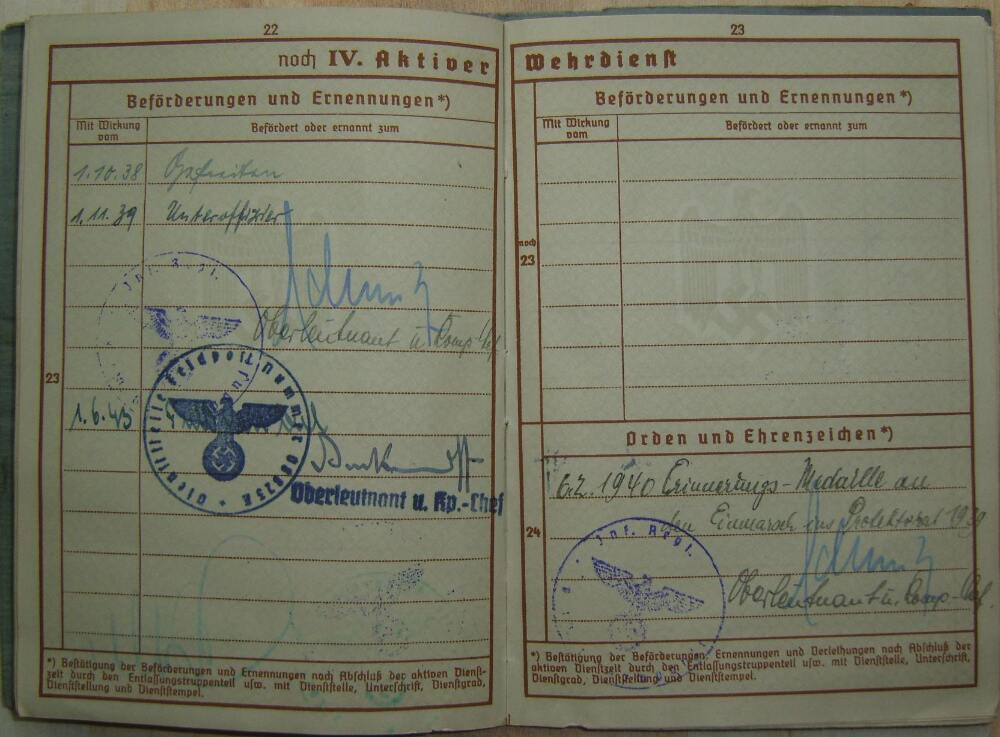 22
noch IV. Aktiver
Beförderungen und Ernennungen*)
Mit Wirkung
vom
Befördert oder ernannt zum
1.10.38 Gefreiten
1.11.39 Unteroffizier
Inf. Regt.
Oberleutnant u. Komp. Chef
23
1.6.43
Dienststelle Feldpostnummer
Oberleutnant u. Kp.-Chef
*) Bestätigung der Beförderungen und Ernennungen nach Abschluß der aktiven Dienst-
zeit durch den Entlassungstruppenteil usw. mit Dienststelle, Unterschrift, Dienstgrad,
Dienststellung und Dienststempel.
23
Wehrdienst
Beförderungen und Ernennungen*)
Mit Wirkung
vom
Befördert oder ernannt zum
noch
23
Orden und Ehrenzeichen*)
6.2.1940 Erinnerungs-Medaille an
den Einmarsch ins Protektorat 1939
24
Inf. Regt.
Oberleutnant u. Comp.-Chef.
*) Bestätigung der Beförderungen, Ernennungen und Verleihungen nach Abschluß der
aktiven Dienstzeit durch den Entlassungstruppenteil usw. mit Dienststelle, Unterschrift,
Dienstgrad, Dienststellung und Dienststempel.